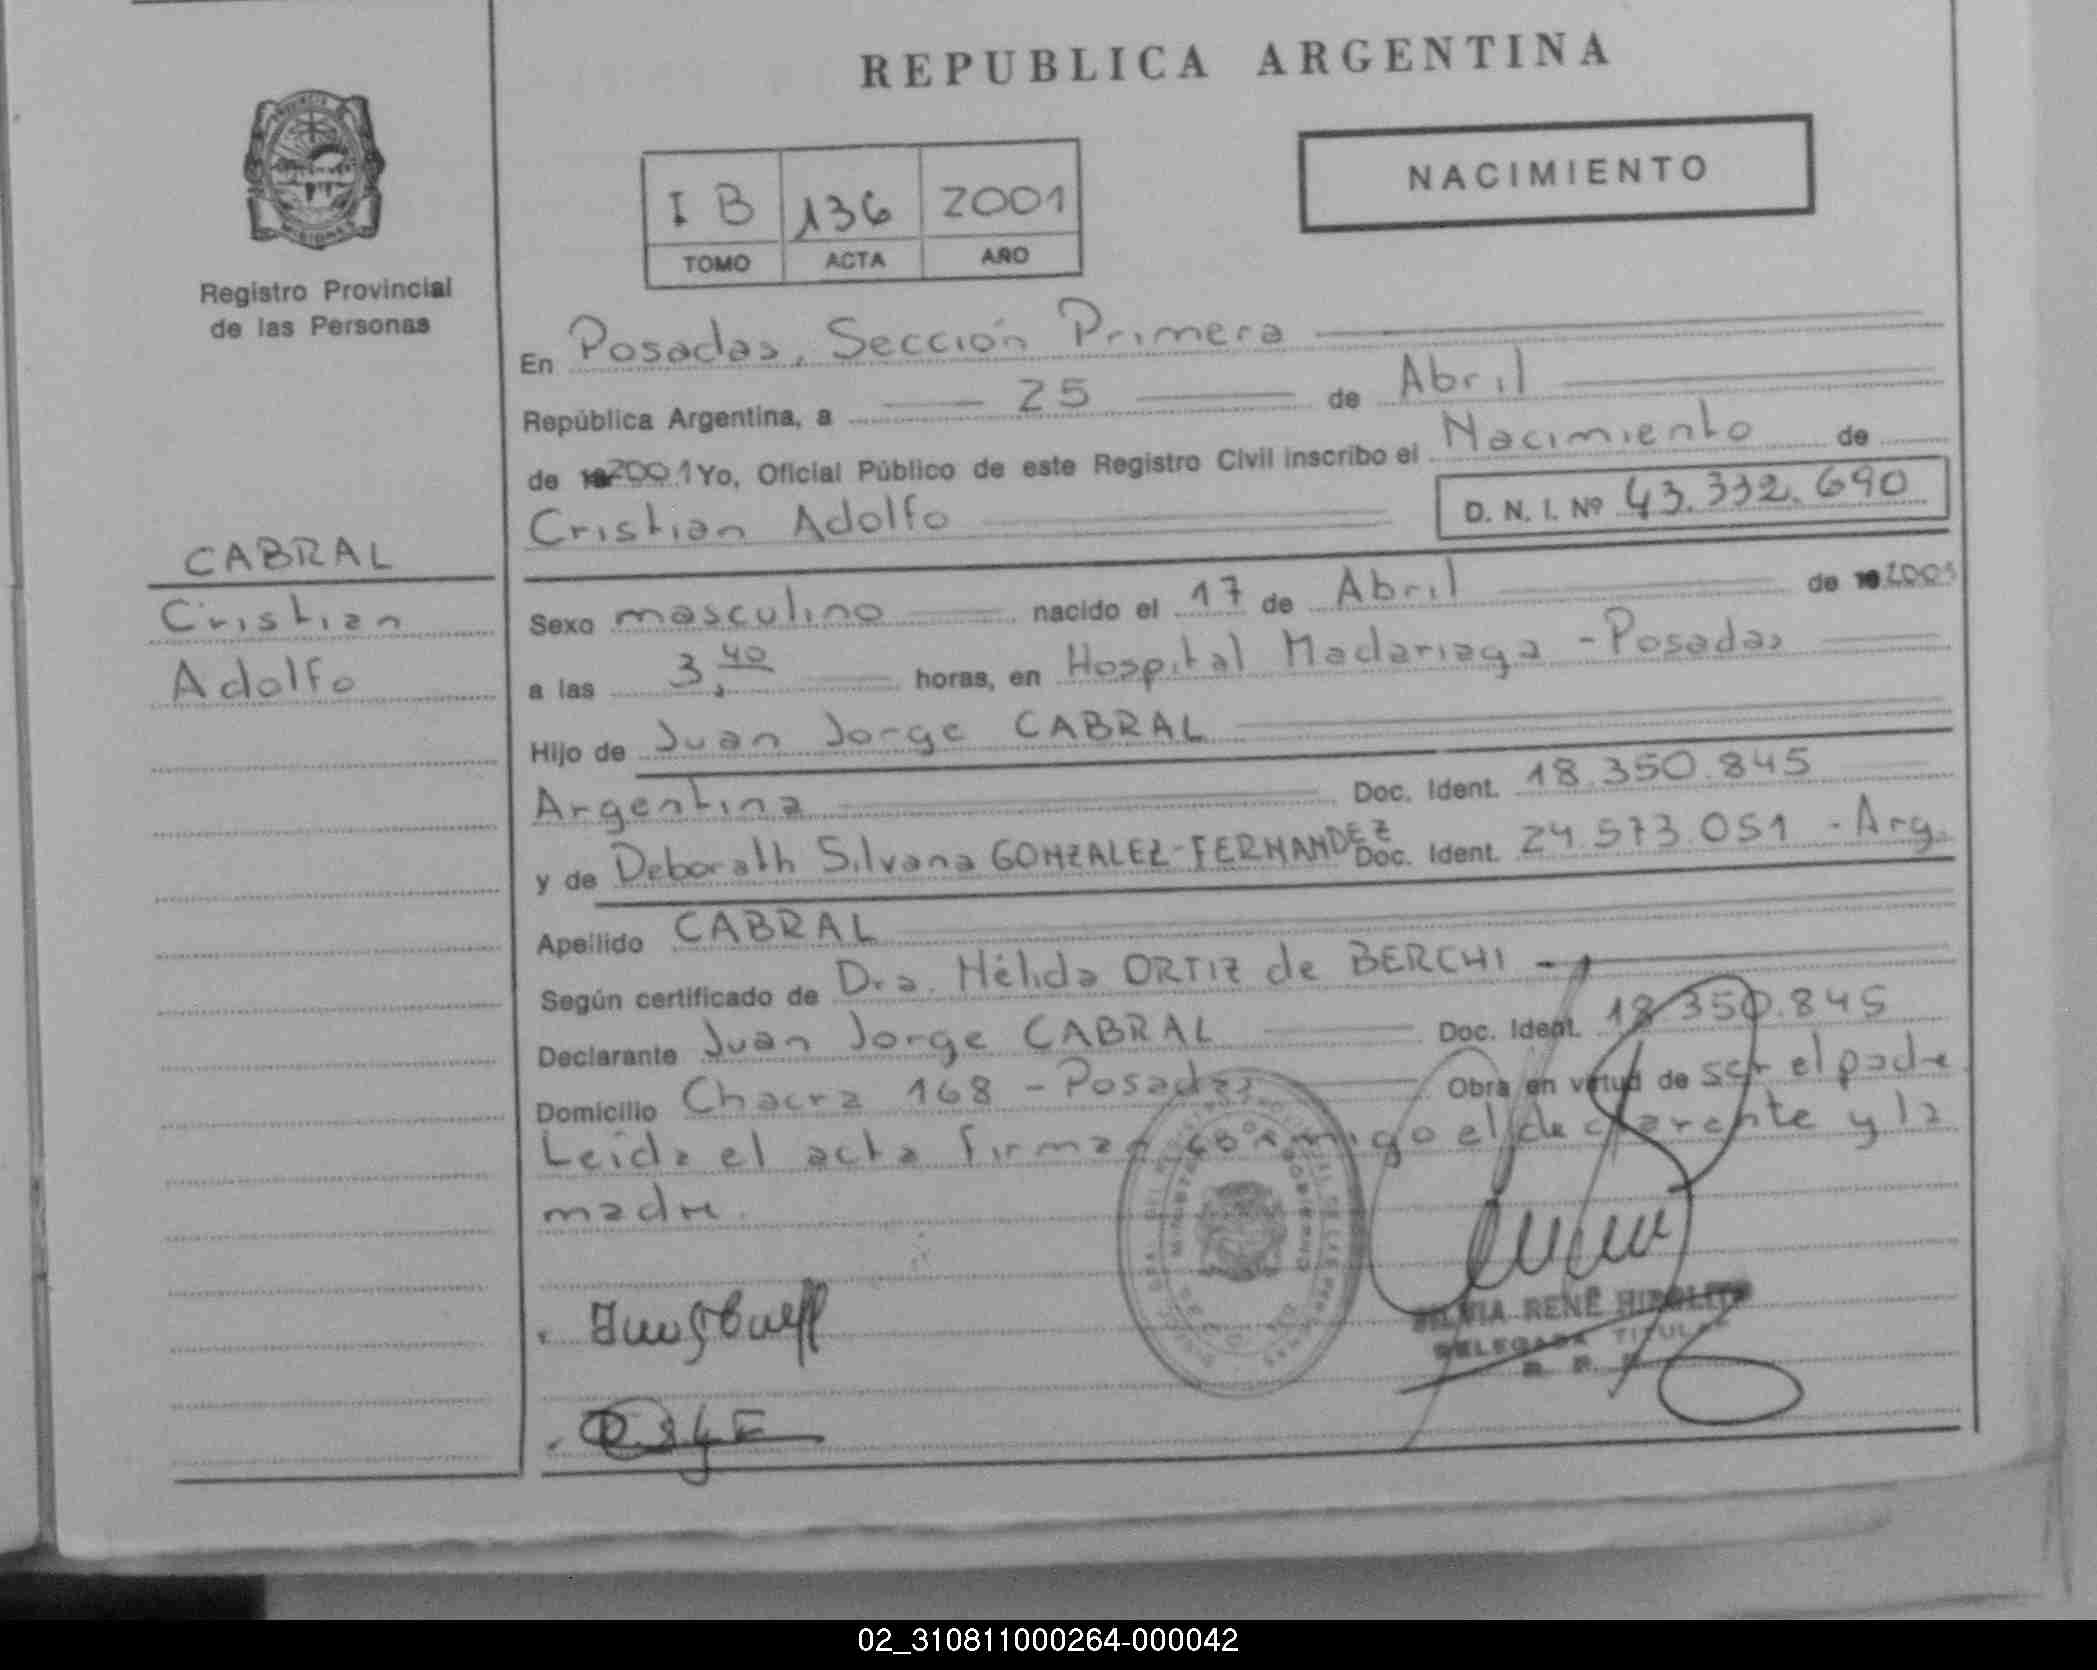 REPUBLICA ARGENTINA
NACIMIENTO
I B 136 2001
TOMO ACTA AÑO
Registro Provincial
de las Personas
En Posadas, Sección Primera
República Argentina, a 25 de Abril
de 2001 Yo, Oficial Público de este Registro Civil inscribo el Nacimiento de
Cristian Adolfo D. N. I. Nº 43.332.690
CABRAL
Cristian
Adolfo
Sexo masculino nacido el 17 de Abril de 2001
a las 3,40 horas, en Hospital Madariaga - Posadas
Hijo de Juan Jorge CABRAL
Argentina Doc. Ident. 18.350.845
y de Deborath Silvana GONZALEZ-FERNANDEZ Doc. Ident. 24.573.051 - Arg.
Apellido CABRAL
Según certificado de Dra. Hélida ORTIZ de BERCHI -
Declarante Juan Jorge CABRAL Doc. Ident. 18.350.845
Domicilio Chacra 168 - Posadas Obra en virtud de ser el padre.
Leída el acta firman conmigo el declarente y la
madre.
SILVIA RENÉ HIPOLITO
DELEGADA TITULAR
R. P. P.
02_310811000264-000042